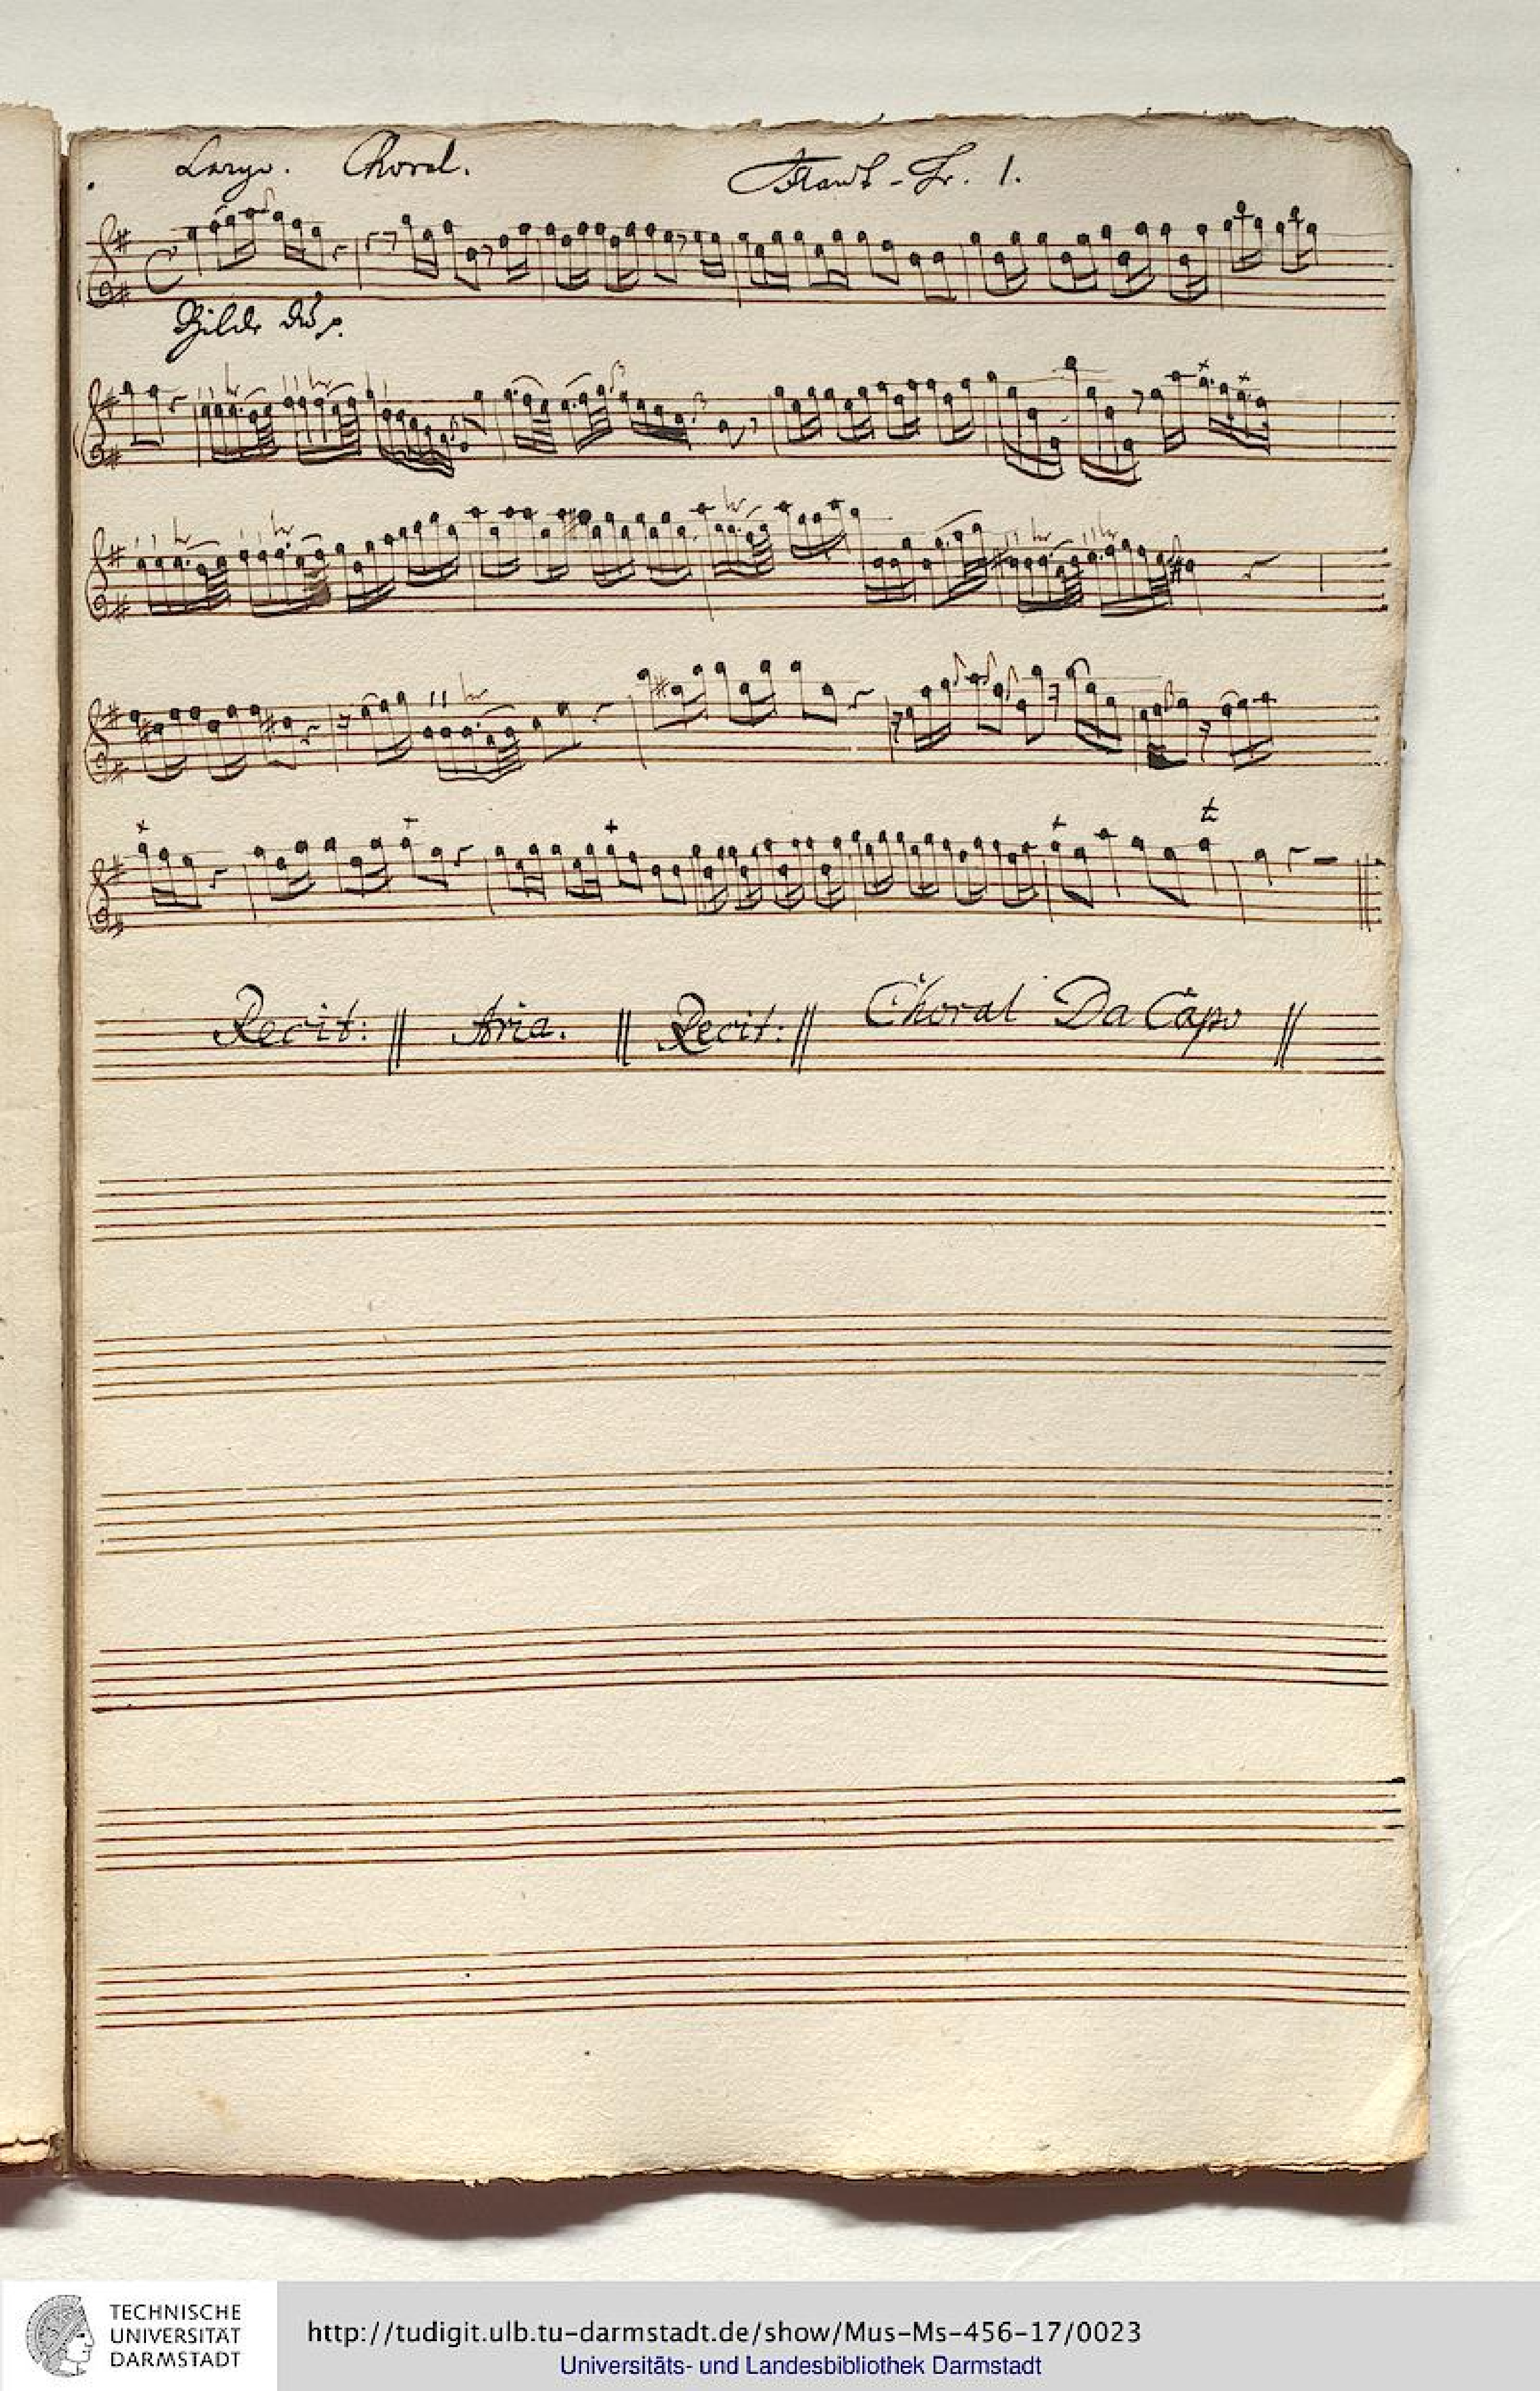 Largo. Choral.
Flaut-Tr. 1.
Recit: || Aria. || Recit: || Choral Da Capo ||
TECHNISCHE
UNIVERSITÄT
DARMSTADT
http://tudigit.ulb.tu-darmstadt.de/show/Mus-Ms-456-17/0023
Universitäts- und Landesbibliothek Darmstadt